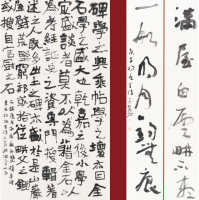 滿屋白雲畊不盡
一船明月釣無痕
碑學之興乘帖學之壞亦因金
石之大盛也乾嘉之後小學
最盛談者莫不藉金石以
為考經證史之資專門搜輯著
述之人既多出土之碑亦盛於是山岩
屋壁荒野窮郊或拾從耕父之鋤
或搜自官厨之石